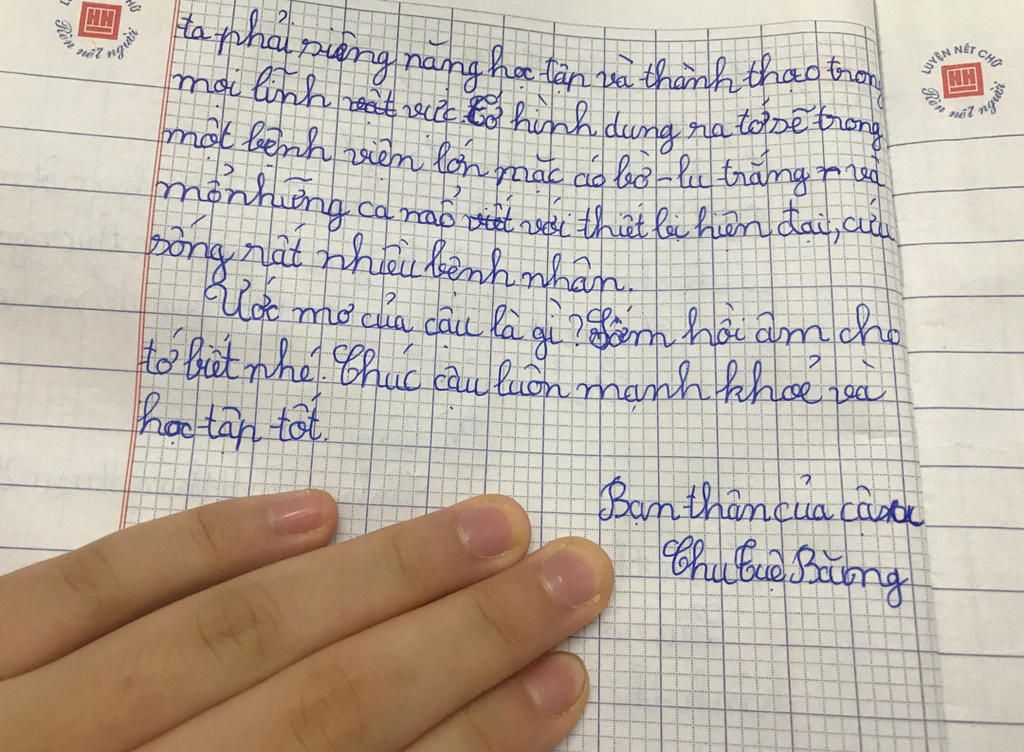 LUYỆN NÉT CHỮ
HH
Rèn nết người
ta phải siêng năng học tập và thành thạo trong
mọi lĩnh vực. Tớ hình dung ra tớ sẽ trong
một bệnh viện lớn mặc áo bờ-lu trắng và
mổ những ca mổ với thiết bị hiện đại, cứu
sống rất nhiều bệnh nhân.
Ước mơ của cậu là gì? Sớm hồi âm cho
tớ biết nhé! Chúc cậu luôn mạnh khoẻ và
học tập tốt.
Bạn thân của cậu
Chu
LUYỆN NÉT CHỮ
HH
Rèn nết người